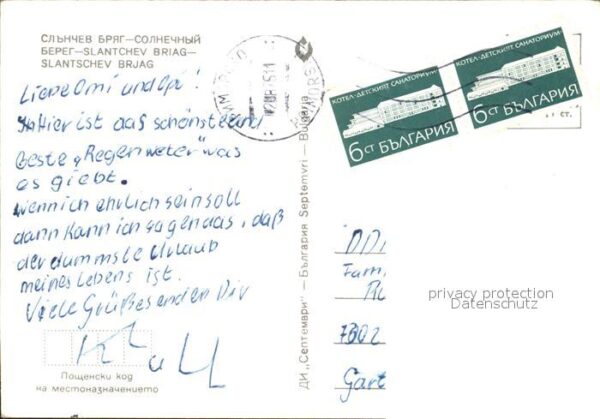 СЛЪНЧЕВ БРЯГ—СОЛНЕЧНЫЙ
БЕРЕГ—SLANTCHEV BRIAG—
SLANTSCHEV BRJAG
Liebe Omi und Opi!
Hier ist das schönste und
beste „Regenweter" was
es giebt.
wenn ich ehrlich sein soll
dann kann ich sagen das, daß
der dummste Urlaub
meines Lebens ist.
Viele Grüße senden Dir
u
Пощенски код
на местоназначението
ДИ „Септември" — България Septemvri — Bulgaria
КОТЕЛ-ДЕТСКИЯТ САНАТОРИУМ
6СТ БЪЛГАРИЯ
КОТЕЛ-ДЕТСКИЯТ САНАТОРИУМ
6СТ БЪЛГАРИЯ
СТ.
DD
Fam.
7302
Gart
privacy protection
Datenschutz